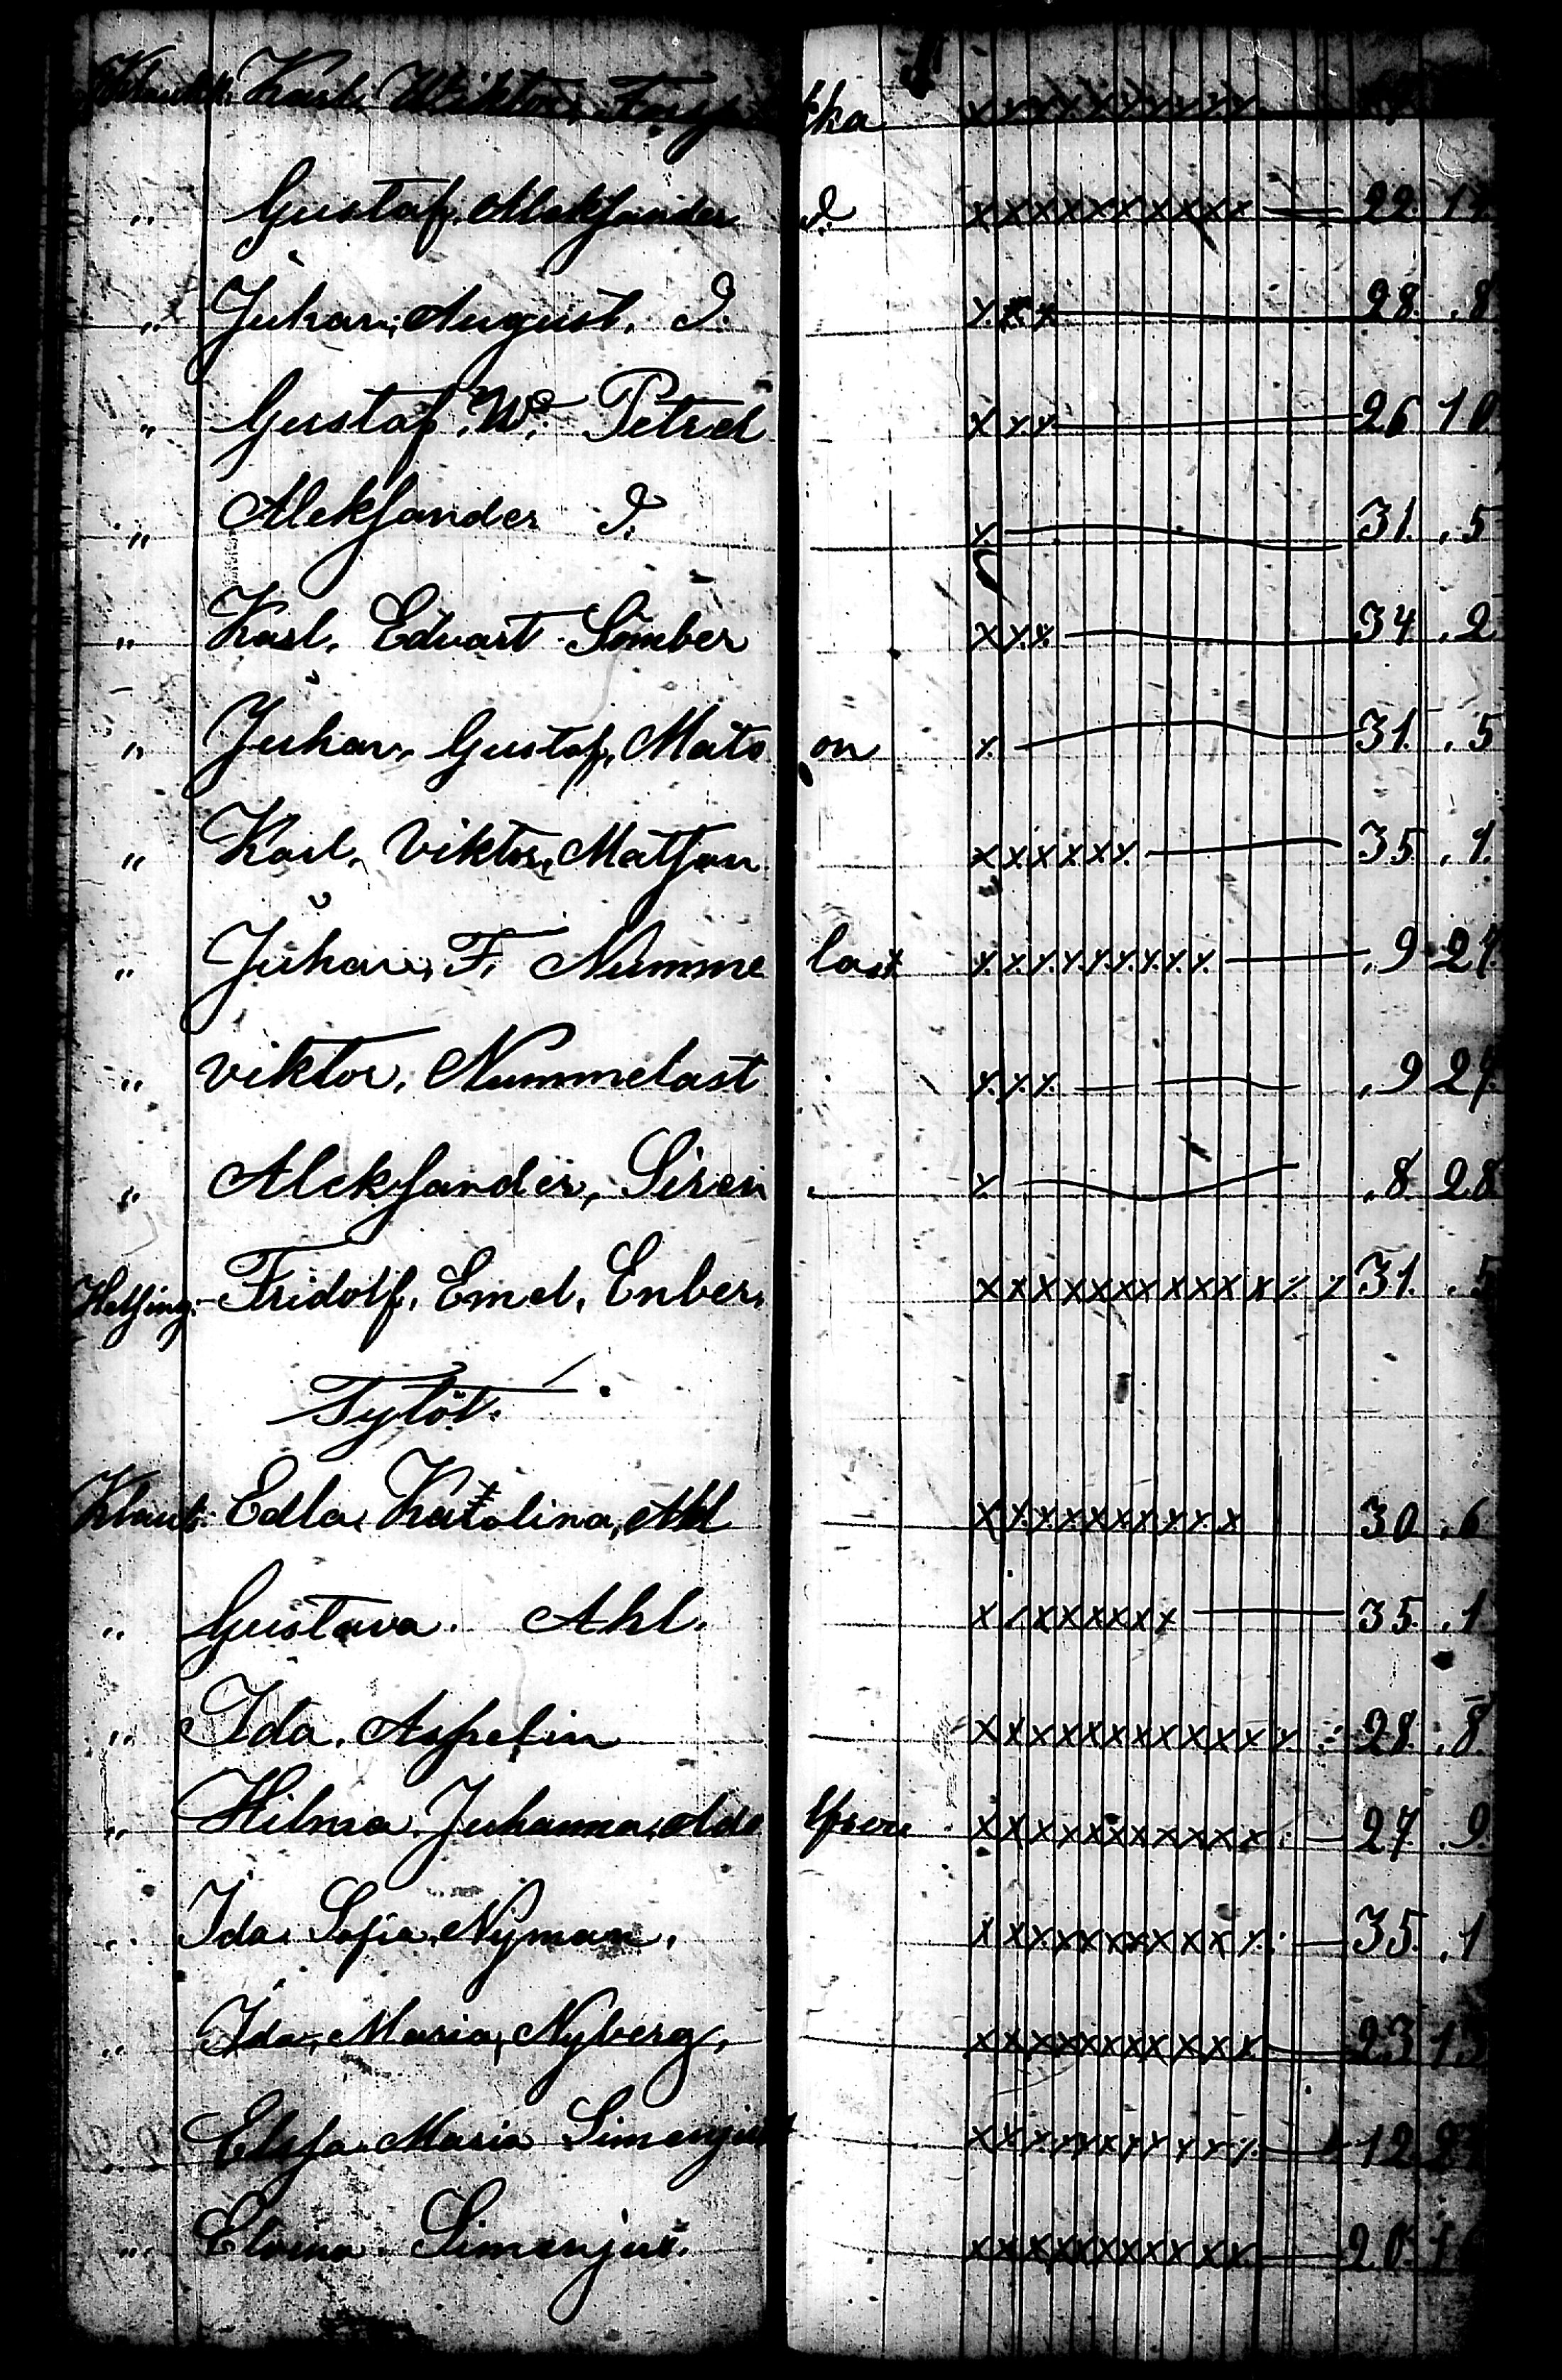 Karl, Wiktor,
" Gustaf. Aleksander D. xxxxxxxxxx — 22. 14
" Juhan, August. D. xxx — 28. .8
" Gustaf. W. Petrel xxx — 26 10
" Aleksander D. x — 31. .5
" Karl. Edvart Sömber xxx — 34 .2
" Juhan, Gustaf, Mats on x. — 31. .5
" Karl, Viktor, Matsson xxxxxx — 35. .1.
" Juhan, F. Numme last xxxxxxxxx — .9 27
" Viktor, Nummelast xxx — .9 27
" Aleksander, Siren x — .8 28
Helsing: Fridolf, Emel, Enber, xxxxxxxxxxxxx 31. .5
Tytöt.
Klauk: Edla, Katolina, Ahl xxxxxxxxxx 30 .6
" Gustava. Ahl. xxxxxxxx — 35. .1
" Ida. Aspelin xxxxxxxxxxxx 28. .8.
" Hilma. Juhanna, xxxxxxxxxxx — 27 .9.
" Ida. Sofia. Nyman. xxxxxxxxxxx — 35. .1
" Ida, Maria, Nyberg, xxxxxxxxxxx — 23 13
" Elsa. Maria Simenjus xxxxxxxxxxx — 12
" Simenjus. xxxxxxxxxxx — 20.